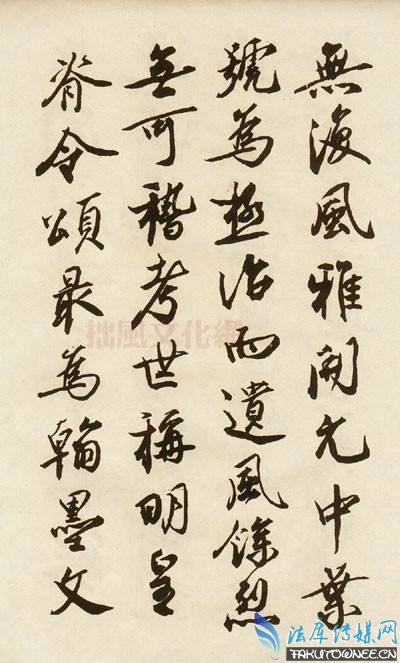 無復風雅開元中葉
號為極治而遺風餘烈
無可稽考世稱明皇
脊令頌最為翰墨文
拙風文化網
法库传媒网
FAKUTOWNEE.CN